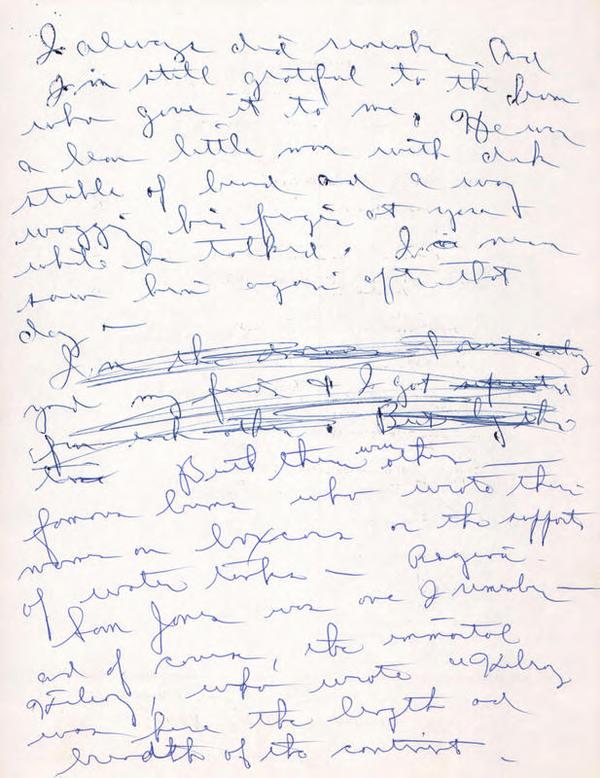 I always did remember. And
I'm still grateful to the bum
who gave it to me. He was
a lean little man with dark
stubble of beard and a way
wagging his finger at you
while he talked. I never
saw him again after that
day —
In the
you my friend & I got separated
from each other. But by this
time But there were others —
famous bums who wrote their
names on boxcars or the supports
of water tanks — 
Sam Jones was one I remember —
and of course, the immortal
Kilroy, who wrote "Kilroy
was here the length and
breadth of the continent.